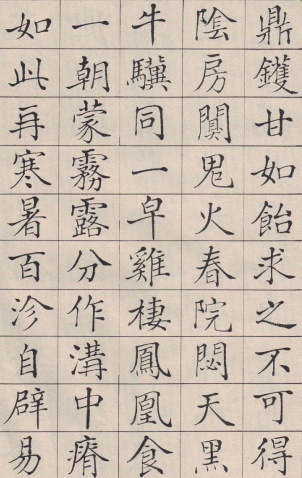 鼎鑊甘如飴求之不可得
陰房闃鬼火春院閟天黑
牛驥同一皁雞棲鳳凰食
一朝蒙霧露分作溝中瘠
如此再寒暑百沴自辟易